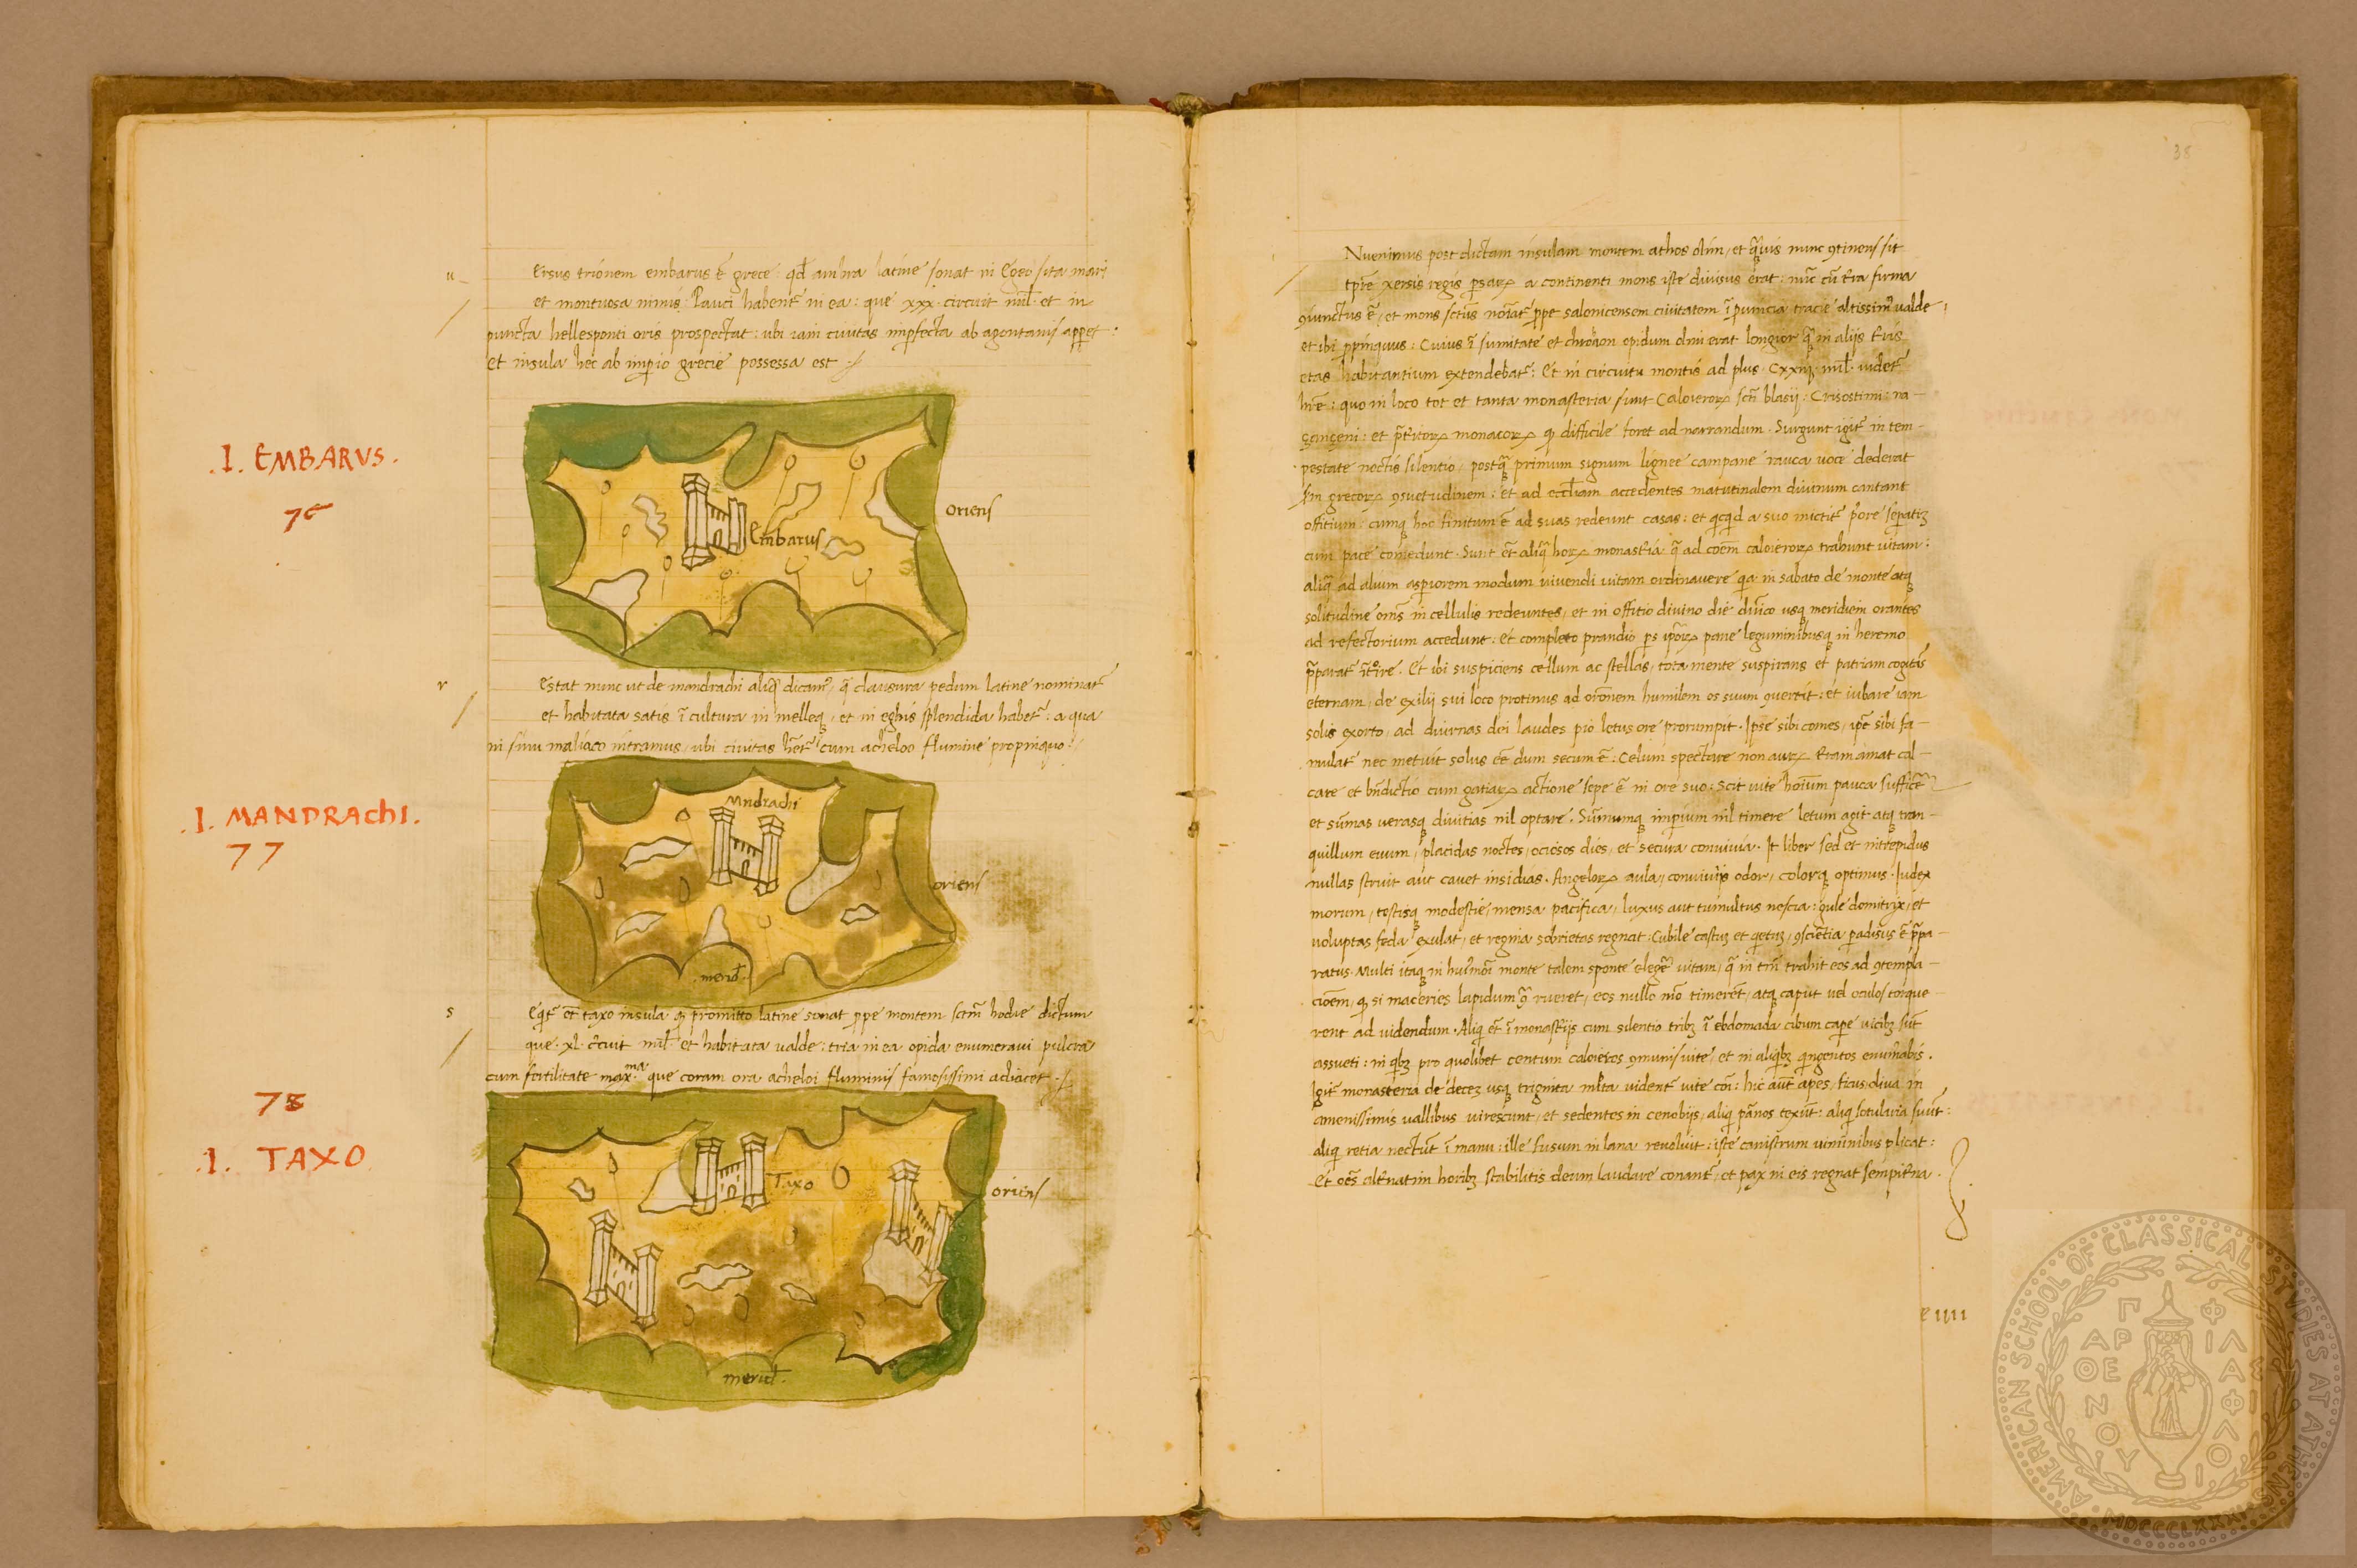 u
ersus trionem embarus ē grece: qd̄ ambra latine sonat in Egeo sita mari
et montuosa nimis: Pauci habent̄ in ea: que xxx. circuit mil̄. et in
puncta hellesponti oris prospectat: ubi iam civitas imperfecta ab agontanis apparet:
et insula hec ab imperio grecie possessa est
.I. EMBARVS.
76
Embarus
oriens
r
Estat nunc ut de mandrachi aliqd̄ dicam, q̄ clausura pedum latine nominat̄
et habitata satis ī cultura in melleq, et in egbis splendida habet̄: a qua
in sinu maliaco intramus, ubi civitas het̄ cum acheloo flumine propinquo:
.I. MANDRAChI.
77
Mndrachi
oriens
merid̄.
s
Eqt̄ et̄ taxo insula q promitto latine sonat prope montem sctm̄ hodie dictum
que. xl. circuit mil̄. et habitata valde: tria in ea opida enumeravi pulcra
cum fertilitate max.ma que coram ora acheloi fluminis famosissimi adiacet.
78
.I. TAXO
Taxo
oriens
merid̄.
38
Nvenimus post dictam insulam montem athos olim, et q̄vis nunc 9tinens sit
tp̄re xersis regis psarꝝ a continenti mons iste divisus erat: nūc cū tra firma
9iunctus ē, et mons sctūs noiat̄ prope salonicensem civitatem ī pvincia tracie altissim valde
et ibi ppinquus: Cuius ī sumitate et chroaon opidum olim erat longior q̄ in alijs tris
etas habitantium extendebat̄: Et in circuitu montis ad plus. Cxxiiij. mil̄. videt̄
hr̄e: quo in loco tot et tanta monasteria sunt Caloierorꝝ scti blasij: Crisostimi: na-
çançeni: et pr̄itorꝝ monacorꝝ q difficile foret ad narrandum. Surgunt igit̄ in tem-
pestate noctis silentio, postq̄ primum signum lignee campane rauca voce dederat
sm̄ grecorꝝ 9suetudinem: et ad eccl̄iam accedentes matutinalem divinum cantant
offitium: cumq hoc finitum ē ad suas redeunt casas: et qcqd a suo mictit̄ pore separatiz
cum pace comedunt. Sunt et̄ aliq̄ horꝝ monastria q̄ ad coem̄ caloierorꝝ trahunt vitam:
aliq̄ ad alium aspiorem modum vivendi vitam ordinavere qa in sabato de monte atq
solitudine oms̄ in cellulis redeuntes, et in offitio divino die dnīco usq meridiem orantes
ad refectorium accedunt: et completo prandio ps ipsorꝝ pane leguminibusq in heremo
p̄parat̄ it̄ire. Et ibi suspiciens cellum ac stellas, tota mente suspirans et patriam cogitās
eternam, de exilij sui loco protinus ad orōnem humilem os suum 9vertit: et iubare iam
solis exorto, ad diurnas dei laudes pio letus ore prorumpit. Ipse sibi comes, ipe sibi fa-
mulat̄ nec metuit solus eē dum secum ē: Celum spectare non aurꝝ tram amat cal-
care et bn̄dictio cum gatiarꝝ actione sepe ē in ore suo: scit vite hoīum pauca suffice
et sumas verasq divitias nil optare. Summumq imperium nil timere letum agit atq tran-
quillum evum, placidas noctes, ociosos dies, et secura convivia. It liber sed et nitrepidus
nullas struit aut cavet insidias. Angelorꝝ aula, convivijs odor, colorq optimus. Iudex
morum, testisq modestie, mensa pacifica, luxus aut tumultus nescia: gule domitrix, et
voluptas feda exulat, et regina sobrietas regnat: Cubile castuz et qetuz, 9scientia padisus ē p̄pa-
ratus. Multi itaq in huiusmoi monte talem sponte elegē vitam, q̄ in tm̄ trahit eos ad 9templa-
cioem, q si maceries lapidum 9rueret, eos nullo mo timerēt, atq caput vel oculos torque
rent ad videndum. Aliq et̄ ī monastijs cum silentio tribz ī ebdomada cibum cape vicibz sut̄
assueti: in qbz pro quolibet centum caloieros 9munis vite, et in aliqbz qngentos enumabis.
Igit̄ monasteria de decez usq trigninta mlta vident̄ vite con̄: hic aut̄ apes, ficus, oliva in
amenissimis vallibus virescunt, et sedentes in cenobijs, aliq panos texūt: aliq sotularia suūt:
aliq retia nectūt ī manu: ille fusum in lana revoluit: iste canistrum viminibus plicat:
Et oēs alt̄natim horibz stabilitis deum laudare conant̄, et pax in eis regnat sempitna.
e iiii
AMERICAN SCHOOL OF CLASSICAL STUDIES AT ATHENS
MDCCCLXXXI
ΠΑΡΘΕΝΟΥ
ΦΙΛΑΣ ΦΙΛΟΙ